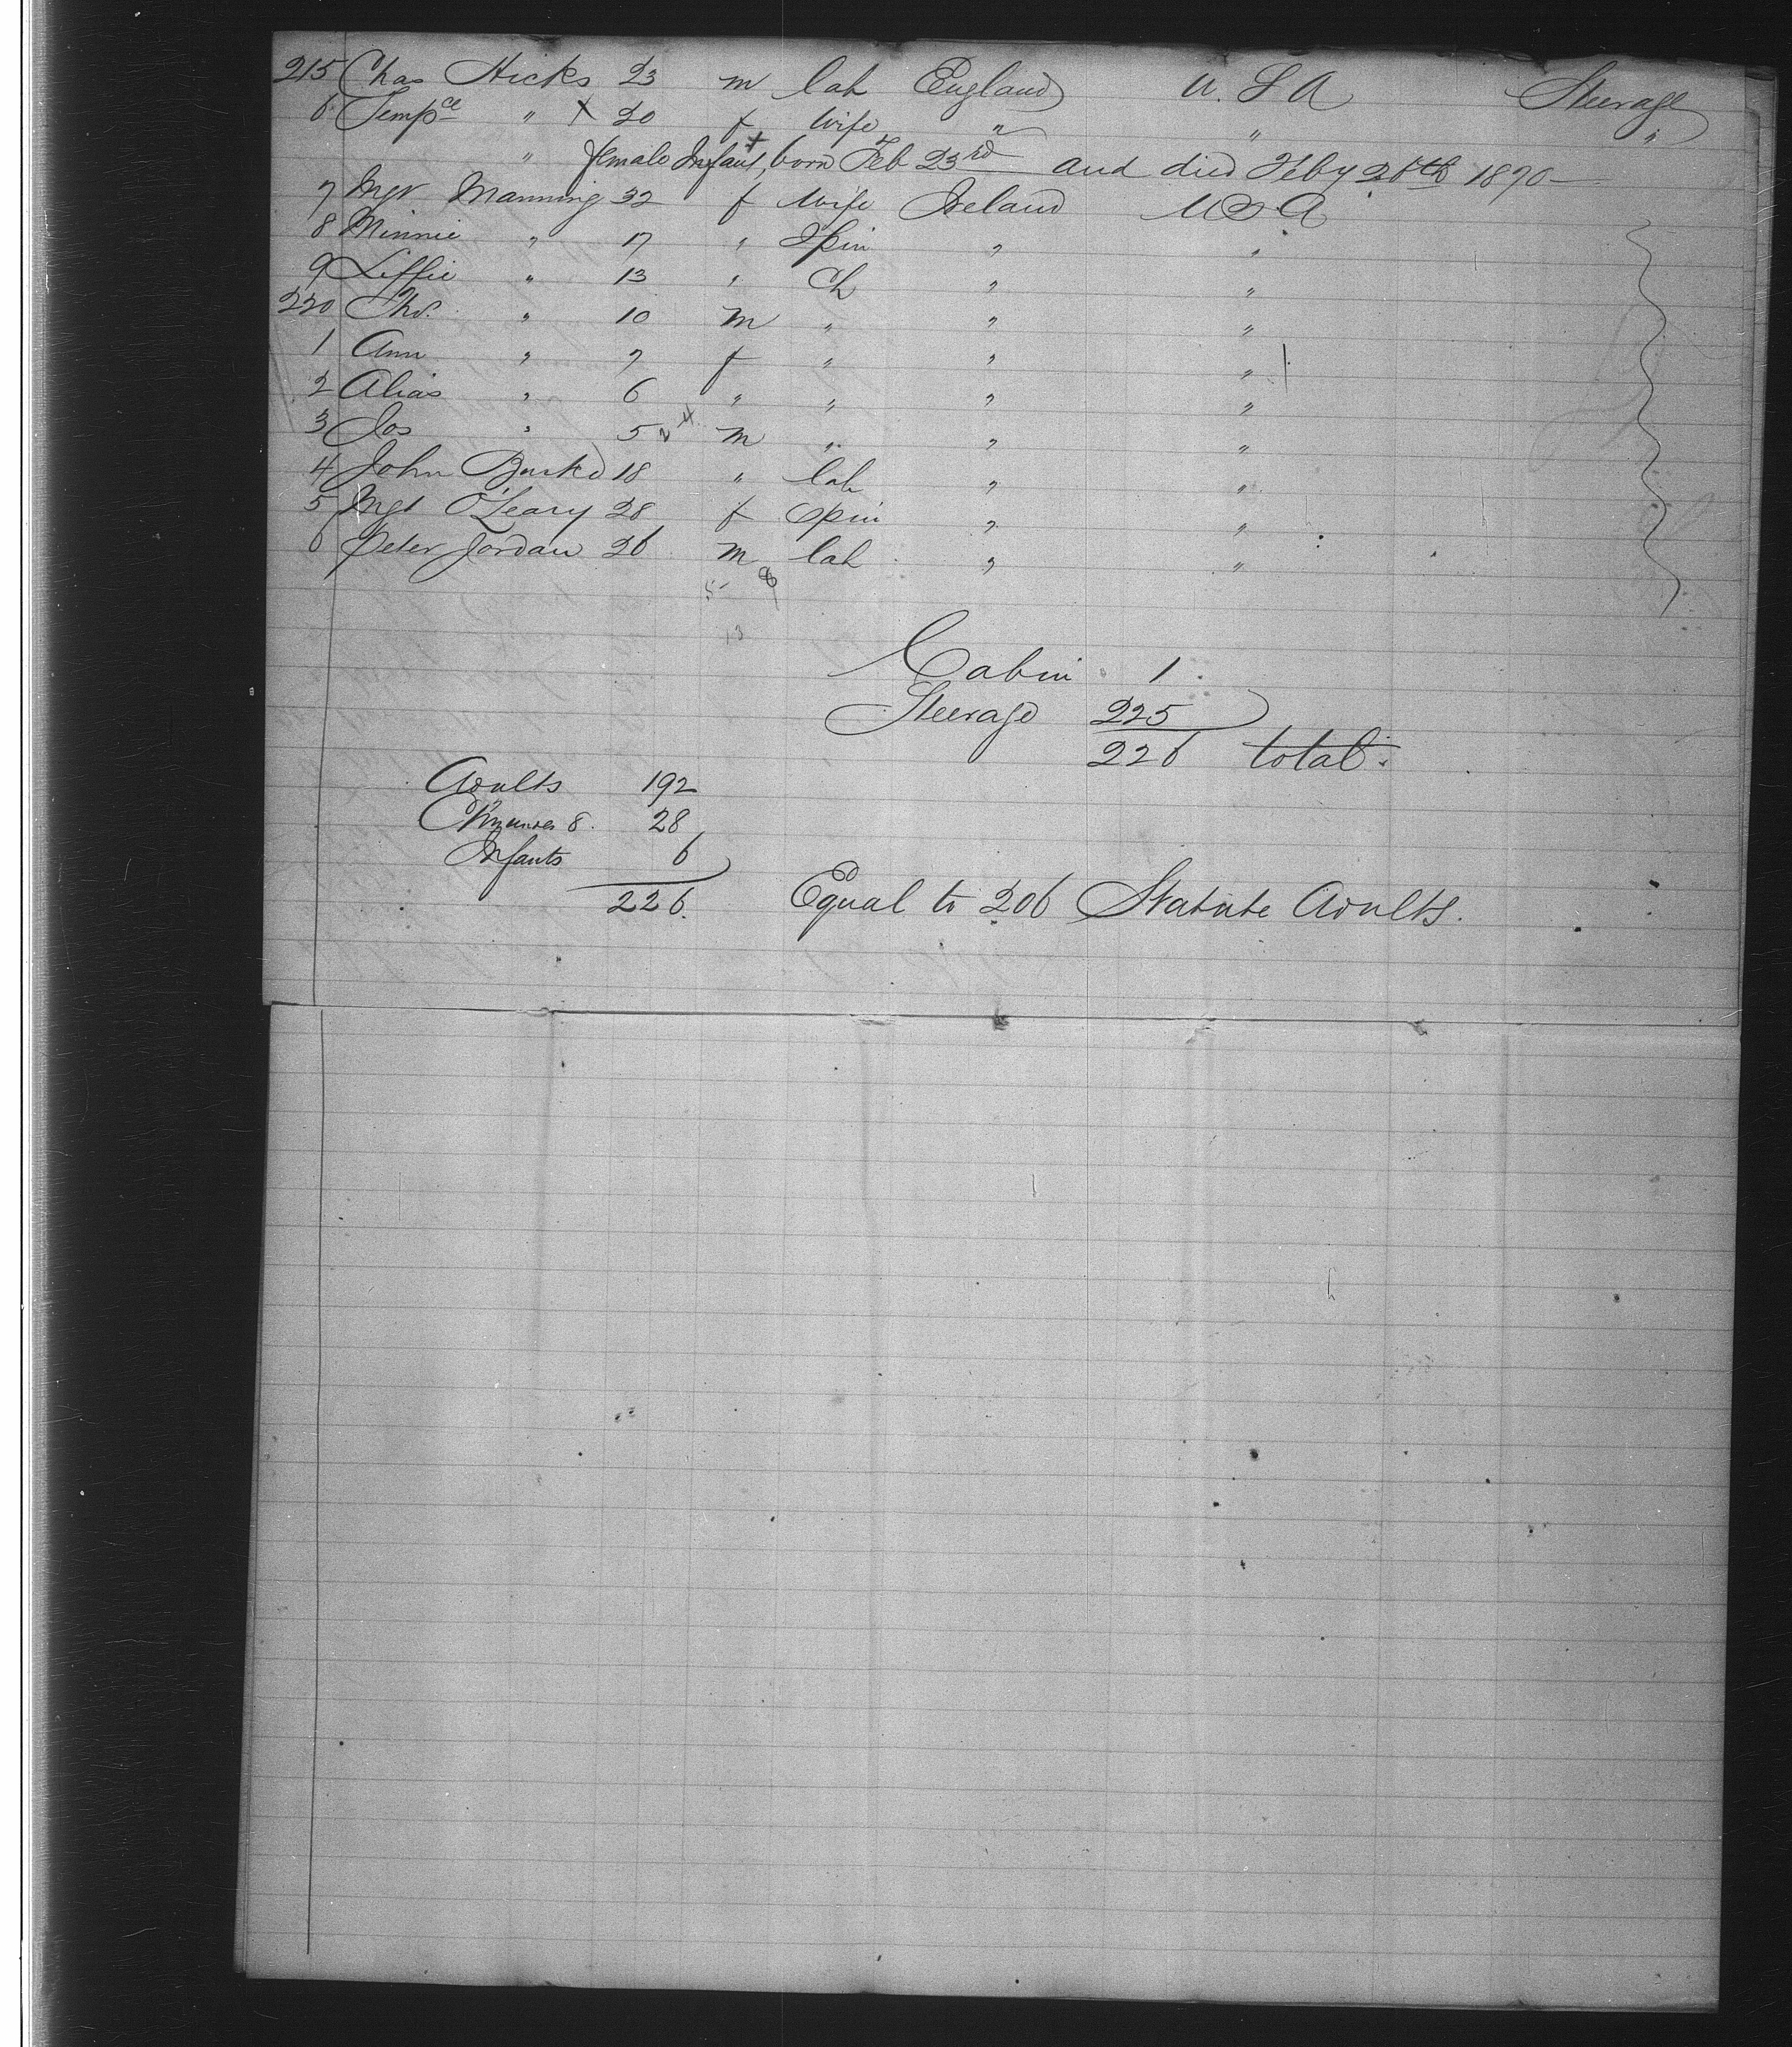 215 Chas Hicks 23 m lab England U.S.A Steerage
6 Tempce " X 20 f Wife " " "
" female Infant, born Feb 23rd and died Feby 26th 1890
7 Mgt Manning 32 f Wife Ireland U S A
8 Minnie " 17 " Spin " "
9 Liffie " 13 " Ch " "
220 Tho. " 10 m " " "
1 Ann " 7 f " " "
2 Alias " 6 " " " "
3 Jos " 5 m " " "
4 John Burke 18 " lab " "
5 Mgt O'Leary 28 f Spin " "
6 Peter Jordan 26 m lab " "
5 8
13
Cabin 1
Steerage 225
226 total
Adults 192
Chn under 8. 28
Infants 6
226. Equal to 206 Statute Adults.